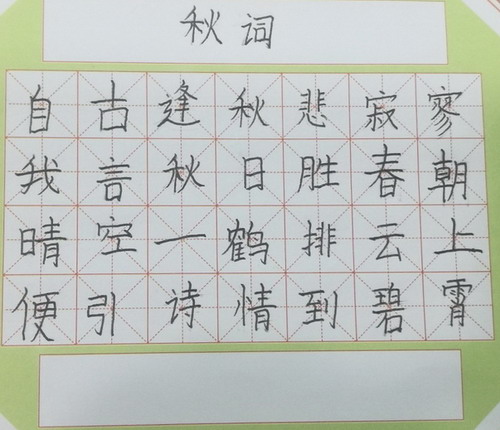 秋词
自古逢秋悲寂寥
我言秋日胜春朝
晴空一鹤排云上
便引诗情到碧霄